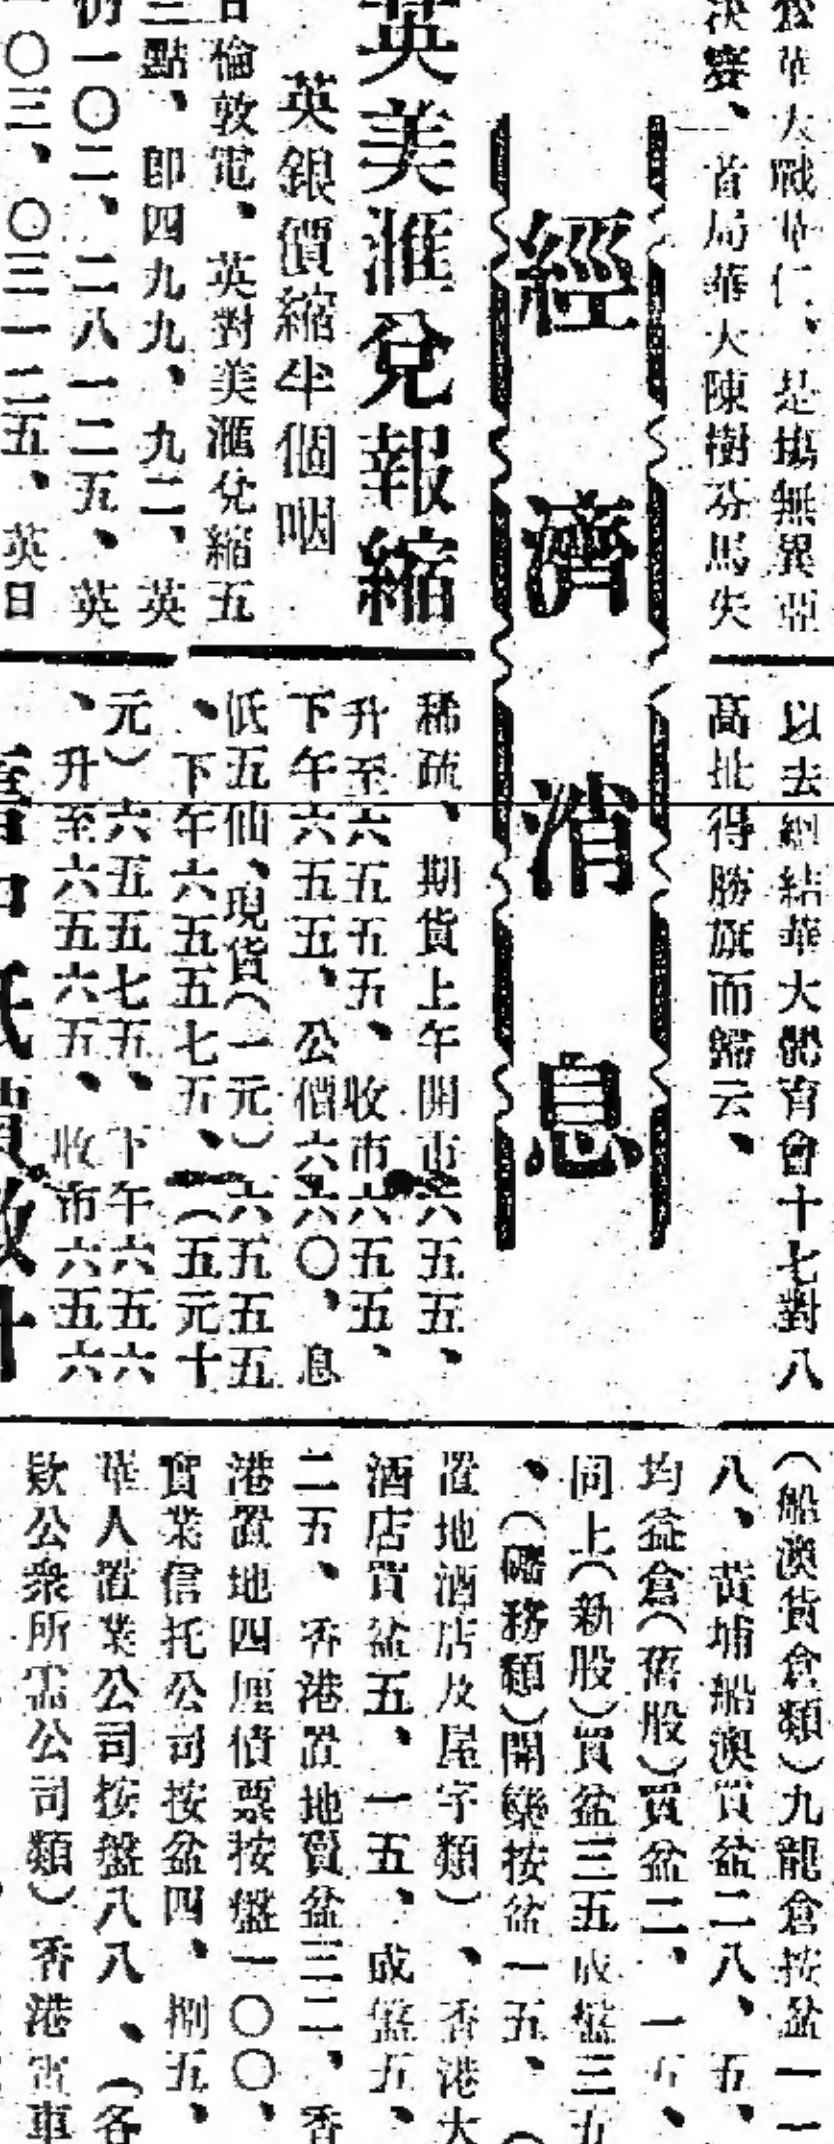 華大戰華仁、是塲無異亞
决賽、首局華大陳樹芬馬失
以去網結華大體育會十七對八
高批得勝旗而歸云、
經濟消息
英美滙兌報縮
英銀價縮半個咽
日倫敦電、英對美滙兌縮五
三點、卽四九九、九二、英
仍一〇二、二八一二五、英
一〇三、〇三一二五、英日
稀疏、期貨上午開市六五五、
升至六五五五、收市六五五、
下午六五五、公價六六〇、息
低五仙、現貨(一元)六五五五
、下午六五五七五、(五元十
元)六五五七五、下午六五六
、升至六五六五、收市六五六
(船澳貨倉類)九龍倉按盆一一
八、黃埔船澳買盆二八、五、
均益倉(舊股)買盆二、一五、
同上(新股)買盆三五成盤三五
、(礦務類)開欒按盆一五、(
置地酒店及屋宇類)、香港大
酒店買盆五、一五、成盤五、
二五、香港置地賣盆三二、香
港置地四厘債票按盤一〇〇、
實業信托公司按盆四、捌五、
華人置業公司按盤八八、(各
欵公衆所需公司類)香港電車